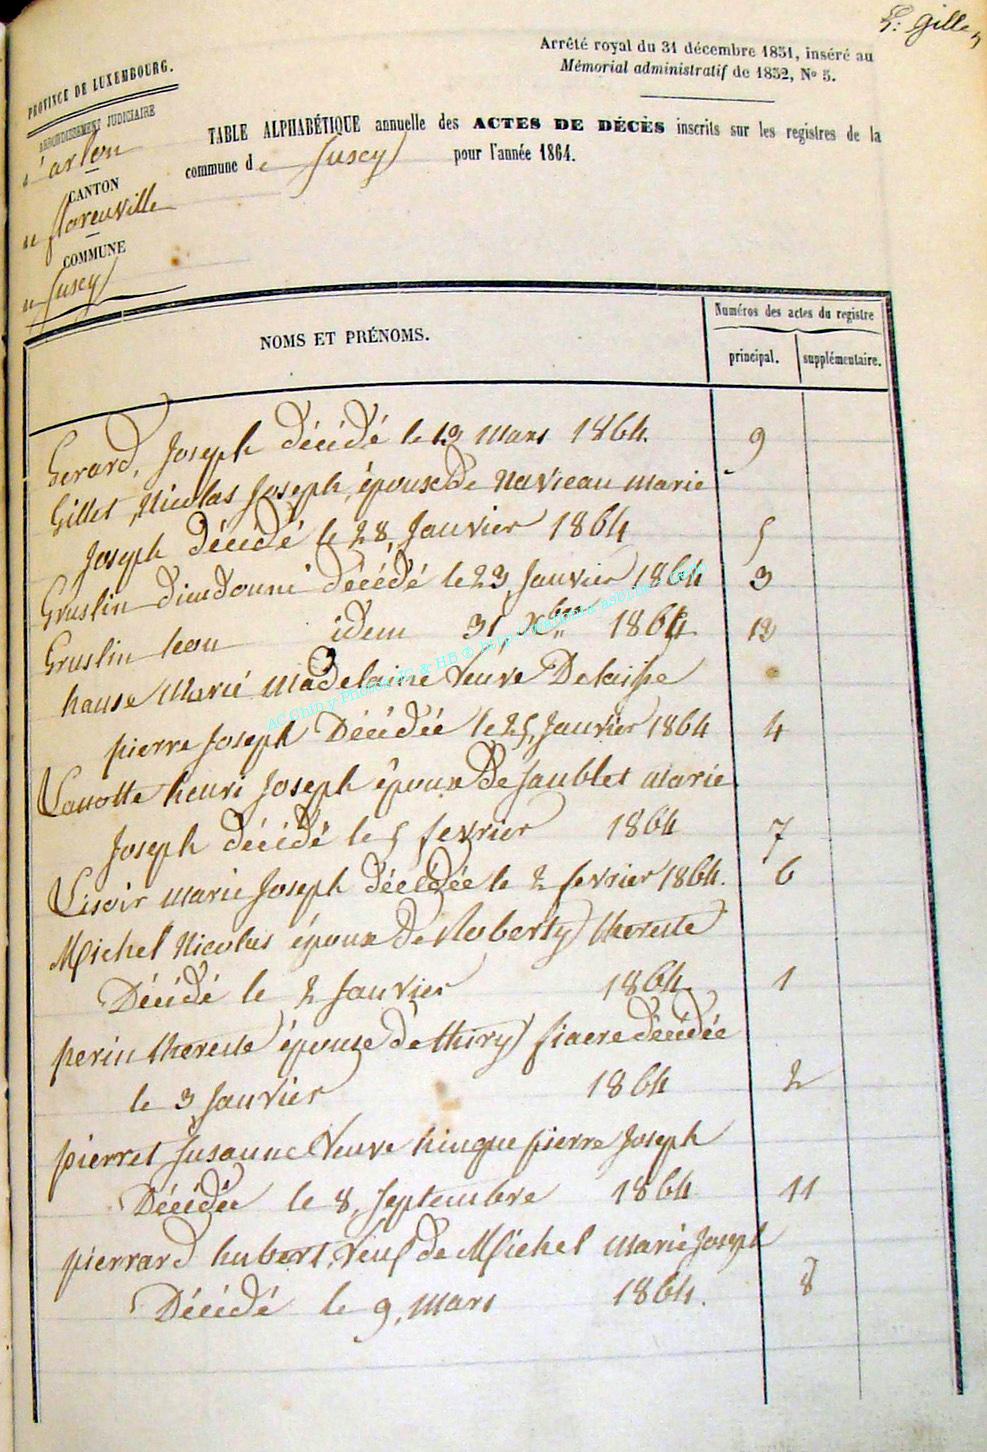 L: Gilles
Arrêté royal du 31 décembre 1831, inséré au
Mémorial administratif de 1832, No 5.
PROVINCE DE LUXEMBOURG.
ARRONDISSEMENT JUDICIAIRE
d'arlon
CANTON
de florenville
COMMUNE
de Suxcy
TABLE ALPHABÉTIQUE annuelle des ACTES DE DÉCÈS inscrits sur les registres de la
commune de Suxcy pour l'année 1864.
NOMS ET PRÉNOMS.
Numéros des actes du registre
principal. supplémentaire.
Gerard, Joseph décédé le 13 Mars 1864. 9
Gillet, Nicolas Joseph, épouse de Navieau marie
Joseph décédé le 28, Janvier 1864 5
Gruslin dieudonné décédé le 23, Janvier 1864 3
Gruslin leon idem 31 Xbre 1864 12
hause Marie Madelaine Veuve Delaisse
pierre Joseph Décédée le 25, Janvier 1864 4
Lanotte henri Joseph époux de Jaublet marie
Joseph décédé le 5 fevrier 1864 7
Lisoir marie Joseph décédée le 2 fevrier 1864. 6
Michel Nicolas époux de Roberty thereste
Décédé le 2 Janvier 1864. 1
perin thereste épouse de thiry fiacre décédée
le 3, Janvier 1864 2
pierret Susanne Veuve hinque pierre Joseph
Décédée le 8, Septembre 1864 11
pierrard hubert, Veuf de Michel marie Joseph
Décédé le 9, Mars 1864. 8